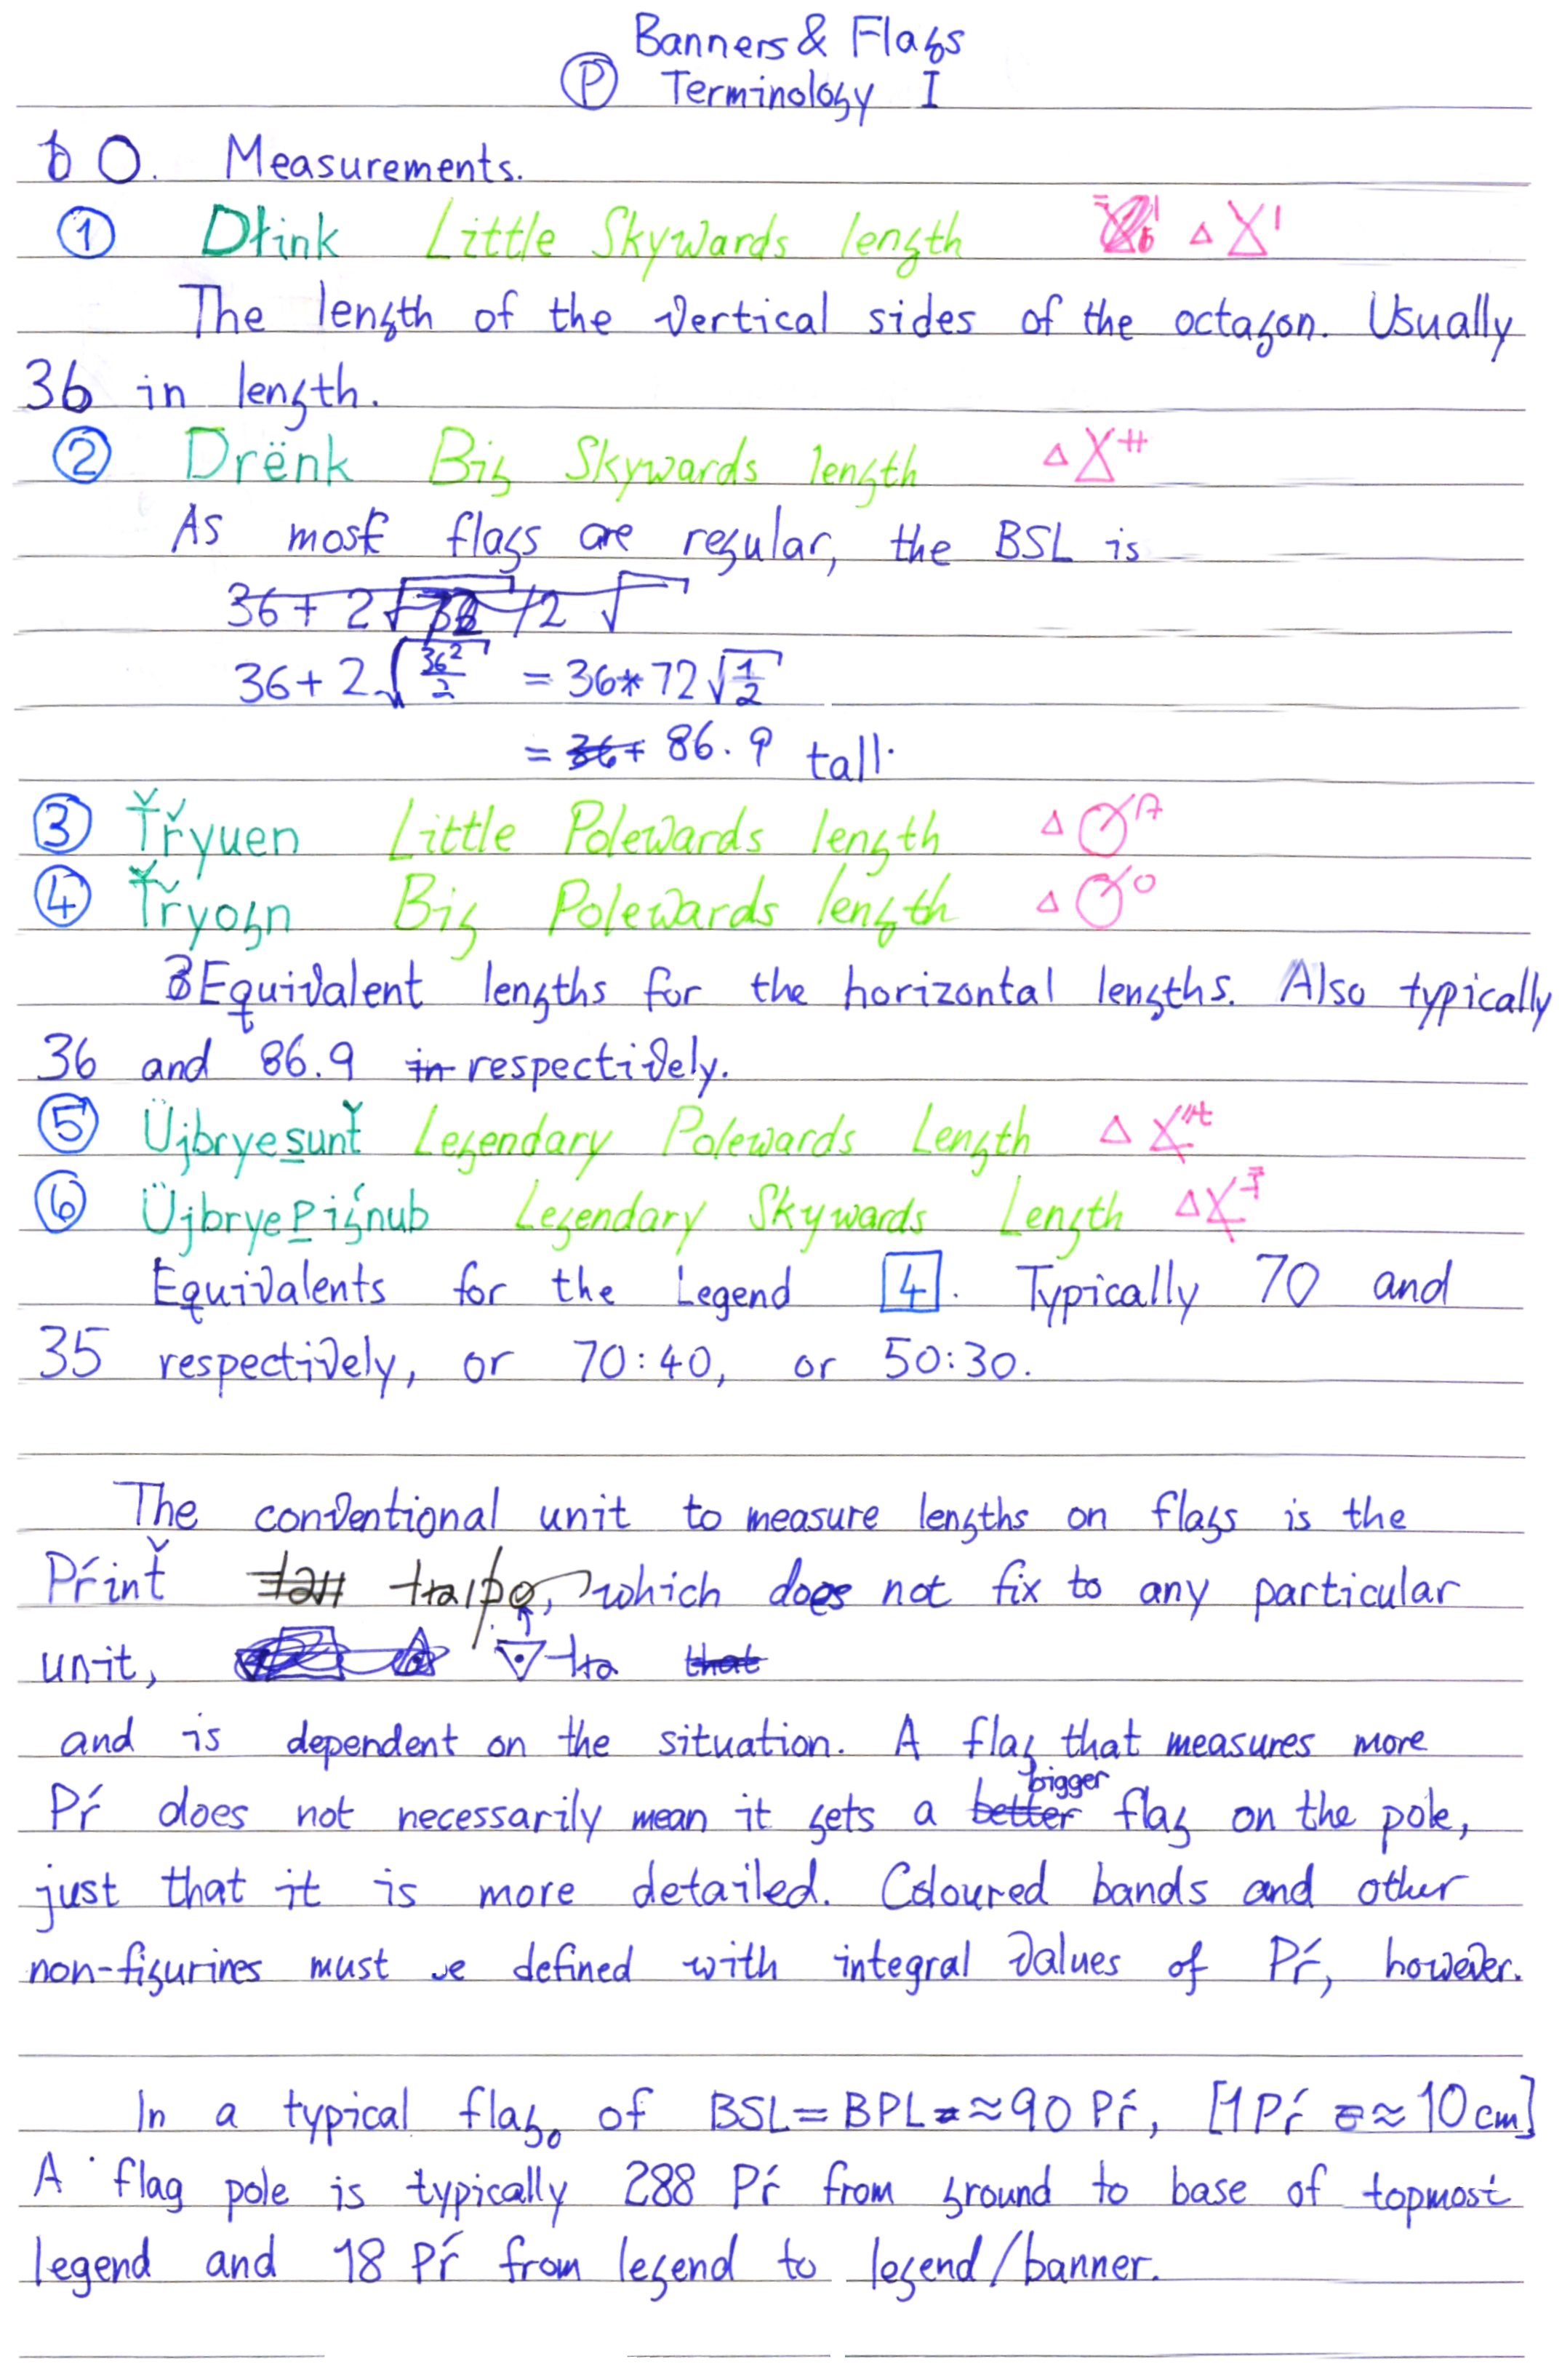 Banners & Flags
Ⓟ Terminology I
0. Measurements.
① Dłink Little Skywards length
The length of the vertical sides of the octagon. Usually
36 in length.
② Drënk Big Skywards length
As most flags are regular, the BSL is
36 + 2√ /2 √
36 + 2√(36²/2) = 36*72√(1/2)
= 36+ 86.9 tall.
③ Ťřyuen Little Polewards length
④ Ťryogn Big Polewards length
Equivalent lengths for the horizontal lengths. Also typically
36 and 86.9 in respectively.
⑤ Üjbryesunť Legendary Polewards Length
⑥ Üjbryepiǵnub Legendary Skywards Length
Equivalents for the Legend 4. Typically 70 and
35 respectively, or 70:40, or 50:30.
The conventional unit to measure lengths on flags is the
Pŕinť which does not fix to any particular
unit, that
and is dependent on the situation. A flag that measures more
Pŕ does not necessarily mean it gets a better bigger flag on the pole,
just that it is more detailed. Coloured bands and other
non-figurines must be defined with integral values of Pŕ, however.
In a typical flag, of BSL = BPL ≈ 90 Pŕ, [1 Pŕ ≈ 10 cm]
A flag pole is typically 288 Pŕ from ground to base of topmost
legend and 18 Pŕ from legend to legend/banner.